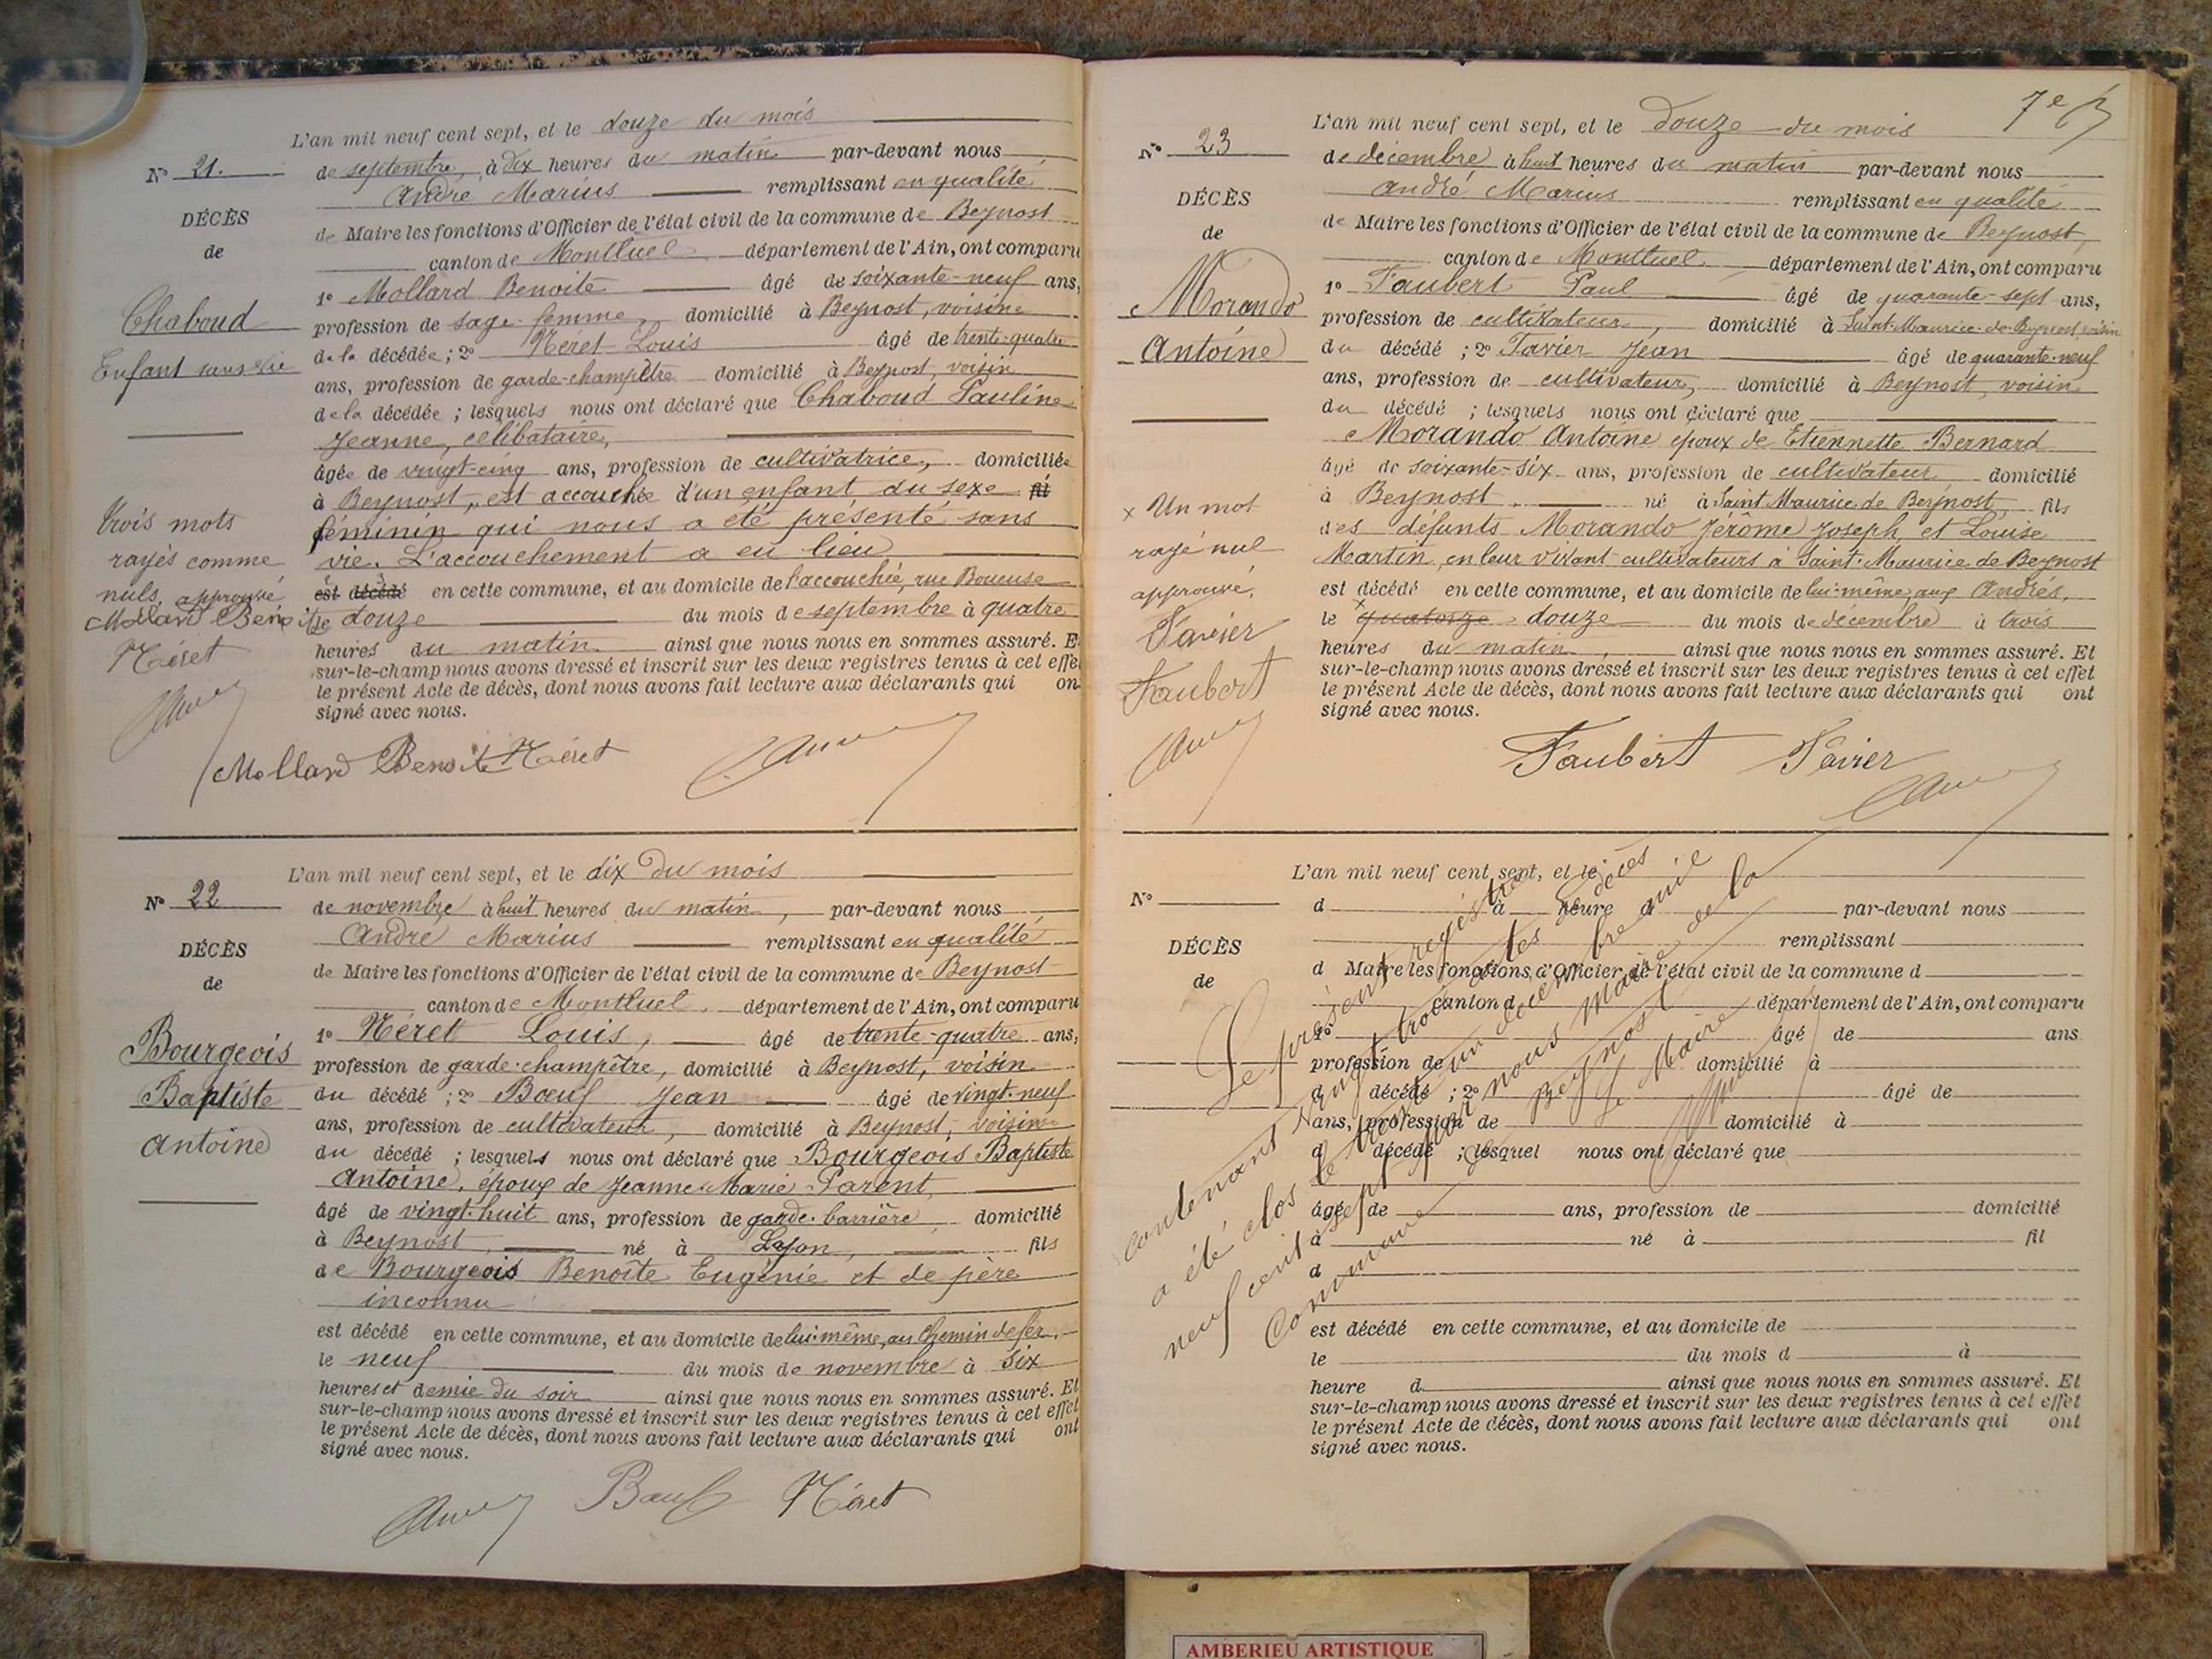 N° 21.
DÉCÈS
de
Chaboud
Enfant sans vie
Trois mots
rayés comme
nuls, approuvé
Mollard Benoite
Néret
L'an mil neuf cent sept, et le douze du mois
de septembre, à dix heures du matin par-devant nous
André Marius remplissant en qualité
de Maire les fonctions d'Officier de l'état civil de la commune de Beynost
canton de Montluel département de l'Ain, ont comparu
1° Mollard Benoite âgé de soixante-neuf ans,
profession de sage-femme, domicilié à Beynost, voisine
de la décédée; 2° Néret Louis âgé de trente-quatre
ans, profession de garde-champêtre domicilié à Beynost, voisin
de la décédée ; lesquels nous ont déclaré que Chaboud Pauline
Jeanne, célibataire,
âgée de vingt-cinq ans, profession de cultivatrice, domiciliée
à Beynost, est accouchée d'un enfant du sexe fil
féminin qui nous a été présenté sans
vie. L'accouchement a eu lieu
est décédé en cette commune, et au domicile de l'accouchée, rue Boueuse
le douze du mois de septembre à quatre
heures du matin ainsi que nous nous en sommes assuré. Et
sur-le-champ nous avons dressé et inscrit sur les deux registres tenus à cet effet
le présent Acte de décès, dont nous avons fait lecture aux déclarants qui ont
signé avec nous.
Mollard Benoite Néret
N° 22
DÉCÈS
de
Bourgeois
Baptiste
Antoine
L'an mil neuf cent sept, et le dix du mois
de novembre à huit heures du matin, par-devant nous
André Marius remplissant en qualité
de Maire les fonctions d'Officier de l'état civil de la commune de Beynost
canton de Montluel département de l'Ain, ont comparu
1° Néret Louis, âgé de trente-quatre ans,
profession de garde-champêtre, domicilié à Beynost, voisin
du décédé ; 2° Bœuf Jean âgé de vingt-neuf
ans, profession de cultivateur, domicilié à Beynost, voisin
du décédé ; lesquels nous ont déclaré que Bourgeois Baptiste
Antoine, époux de Jeanne-Marie Parent,
âgé de vingt-huit ans, profession de garde-barrière domicilié
à Beynost, né à Lyon, fils
de Bourgeois Benoîte Eugénie et de père
inconnu
est décédé en cette commune, et au domicile de lui-même, au Chemin de fer,
le neuf du mois de novembre à six
heures et demie du soir ainsi que nous nous en sommes assuré. Et
sur-le-champ nous avons dressé et inscrit sur les deux registres tenus à cet effet
le présent Acte de décès, dont nous avons fait lecture aux déclarants qui ont
signé avec nous.
Bœuf Néret
7e
N° 23
DÉCÈS
de
Morando
Antoine
x Un mot
rayé nul
approuvé,
Tavier
Faubert
L'an mil neuf cent sept, et le douze du mois
de décembre à huit heures du matin par-devant nous
André Marius remplissant en qualité
de Maire les fonctions d'Officier de l'état civil de la commune de Beynost,
canton de Montluel département de l'Ain, ont comparu
1° Faubert Paul âgé de quarante-sept ans,
profession de cultivateur, domicilié à Saint-Maurice-de-Beynost, voisin
du décédé ; 2° Tavier Jean âgé de quarante-neuf
ans, profession de cultivateur, domicilié à Beynost, voisin
du décédé ; lesquels nous ont déclaré que
Morando Antoine époux de Etiennette Bernard
âgé de soixante-six ans, profession de cultivateur domicilié
à Beynost, né à Saint Maurice de Beynost, fils
des défunts Morando Jérôme Joseph, et Louise
Martin, en leur vivant cultivateurs à Saint-Maurice de Beynost
est décédé en cette commune, et au domicile de lui-même, aux Andrés,
le x quatorze douze du mois de décembre à trois
heures du matin, ainsi que nous nous en sommes assuré. Et
sur-le-champ nous avons dressé et inscrit sur les deux registres tenus à cet effet
le présent Acte de décès, dont nous avons fait lecture aux déclarants qui ont
signé avec nous.
Faubert Tavier
N°
DÉCÈS
de
L'an mil neuf cent sept, et le
d à heure d par-devant nous
remplissant
d Maire les fonctions d'Officier de l'état civil de la commune d
canton d département de l'Ain, ont comparu
1° âgé de ans
profession de domicilié à
d décédé ; 2° âgé de
ans, profession de domicilié à
d décédé ; lesquel nous ont déclaré que
âgé de ans, profession de domicilié
à né à fil
d
est décédé en cette commune, et au domicile de
le du mois d à
heure d ainsi que nous nous en sommes assuré. Et
sur-le-champ nous avons dressé et inscrit sur les deux registres tenus à cet effet
le présent Acte de décès, dont nous avons fait lecture aux déclarants qui ont
signé avec nous.
Le présent registre
contenant vingt trois actes de décès
a été clos le trente un décembre mil
neuf cent sept par nous Maire de la
Commune de Beynost
Le Maire
AMBERIEU ARTISTIQUE